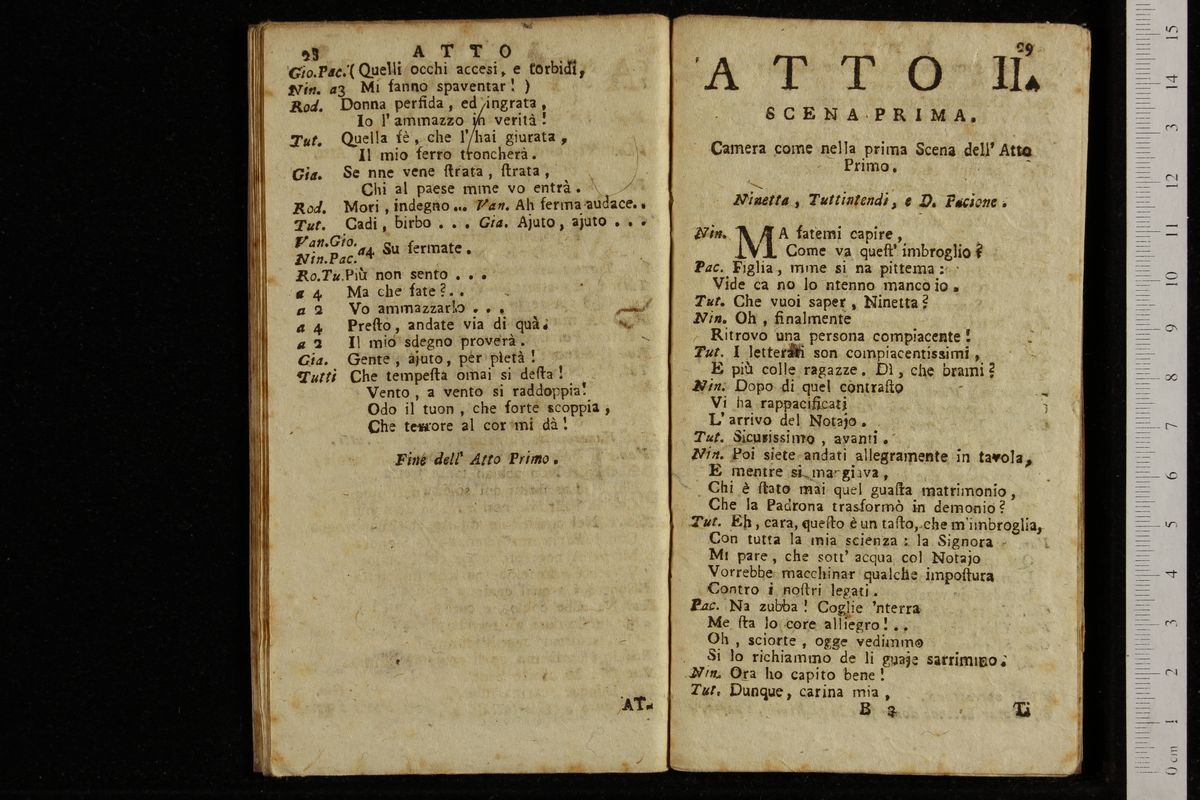 28 ATTO
Gio.Pac. ( Quelli occhi accesi, e torbidi,
Nin. a3 Mi fanno spaventar! )
Rod. Donna perfida, ed ingrata,
Io l'ammazzo in verità!
Tut. Quella fè, che l'hai giurata,
Il mio ferro troncherà.
Gia. Se nne vene ſtrata, ſtrata,
Chi al paese mme vo entrà.
Rod. Mori, indegno... Van. Ah ferma audace..
Tut. Cadi, birbo . . . Gia. Ajuto, ajuto . . .
Van.Gio.
Nin.Pac. a4 Su fermate.
Ro.Tu. Più non sento . . .
a 4 Ma che fate? . .
a 2 Vo ammazzarlo . . .
a 4 Preſto, andate via di quà.
a 2 Il mio sdegno proverà.
Gia. Gente, ajuto, per pietà!
Tutti Che tempeſta omai si deſta!
Vento, a vento si raddoppia!
Odo il tuon, che forte scoppia,
Che terrore al cor mi dà!
Fine dell' Atto Primo.
AT-
29
ATTO II.
SCENA PRIMA.
Camera come nella prima Scena dell' Atto
Primo.
Ninetta, Tuttintendi, e D. Pacione.
Nin. MA fatemi capire,
Come va queſt' imbroglio?
Pac. Figlia, mme si na pittema:
Vide ca no lo ntenno manco io.
Tut. Che vuoi saper, Ninetta?
Nin. Oh, finalmente
Ritrovo una persona compiacente!
Tut. I letterati son compiacentissimi,
E più colle ragazze. Dì, che brami?
Nin. Dopo di quel contraſto
Vi ha rappacificati
L'arrivo del Notajo.
Tut. Sicurissimo, avanti.
Nin. Poi siete andati allegramente in tavola,
E mentre si mangiava,
Chi è ſtato mai quel guaſta matrimonio,
Che la Padrona trasformò in demonio?
Tut. Eh, cara, queſto è un taſto, che m'imbroglia,
Con tutta la mia scienza: la Signora
Mi pare, che sott' acqua col Notajo
Vorrebbe macchinar qualche impoſtura
Contro i noſtri legati.
Pac. Na zubba! Coglie 'nterra
Me ſta lo core alliegro! . .
Oh, sciorte, ogge vedimmo
Si lo richiammo de li guaje sarrimmo.
Nin. Ora ho capito bene!
Tut. Dunque, carina mia,
B 3 Ti
15
14
13
12
11
10
9
8
7
6
5
4
3
2
1
0 cm